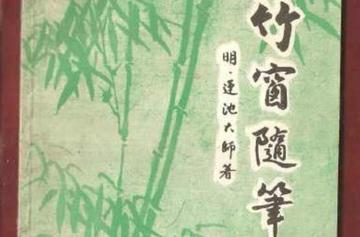 竹窗隨筆
明·蓮池大師著